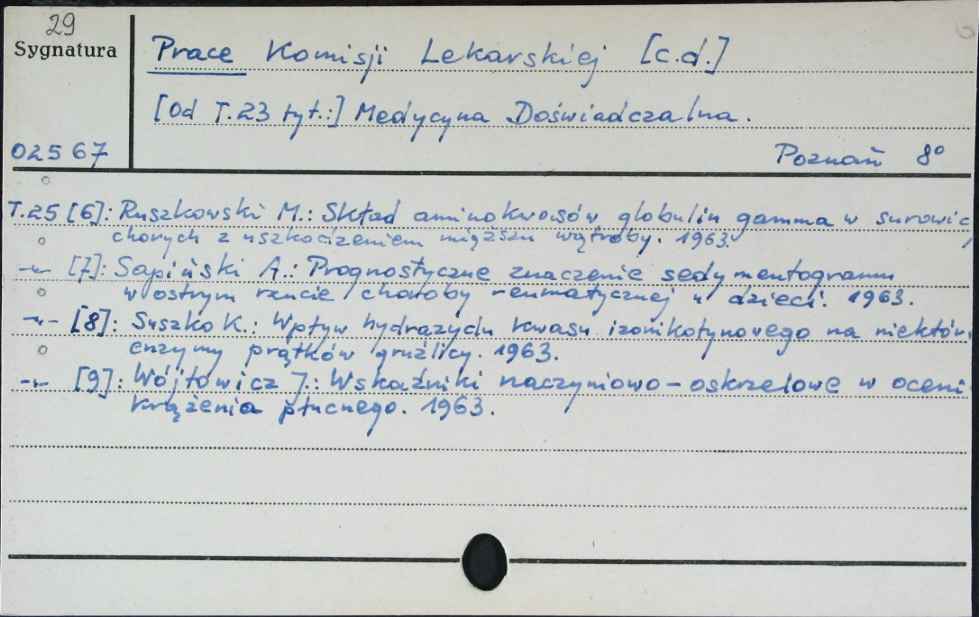 29
Sygnatura
Prace Komisji Lekarskiej [c.d.]
[Od T.23 tyt.:] Medycyna Doświadczalna.
02567
Poznań 8°
T.25 [6]: Ruszkowski M.: Skład aminokwasów globulin gamma w surowicy
chorych z uszkodzeniem miąższu wątroby. 1963.
-"- [7]: Sapiński A.: Prognostyczne znaczenie sedymentogramu
w ostrym rzucie choroby reumatycznej u dzieci. 1963.
-"- [8]: Suszko K.: Wpływ hydrazydu kwasu izonikotynowego na niektór
enzymy prątków gruźlicy. 1963.
-"- [9]: Wójtowicz J.: Wskaźniki naczyniowo-oskrzelowe w oceni
krążenia płucnego. 1963.